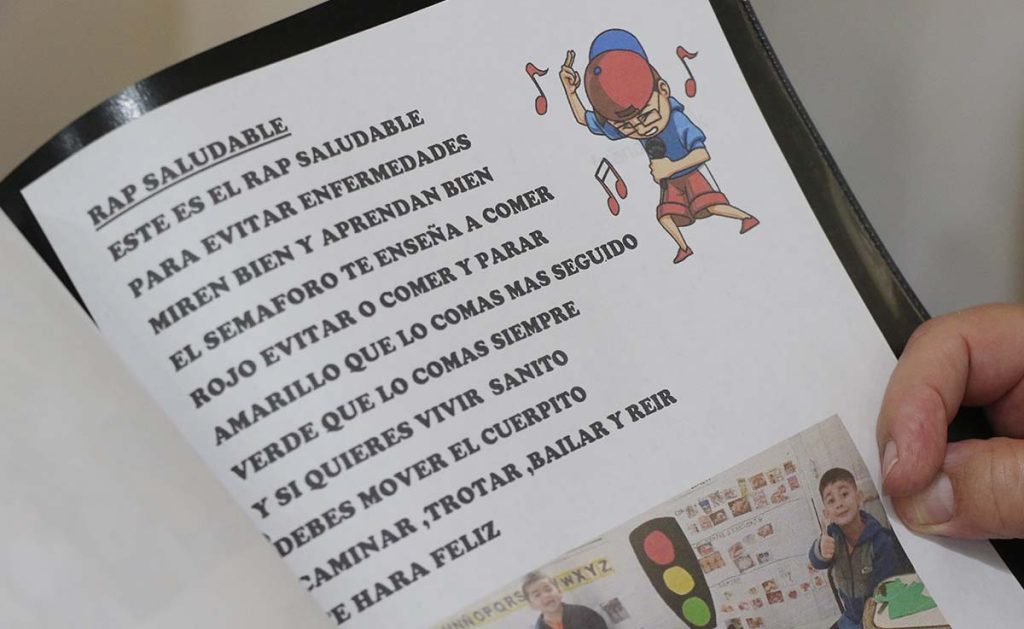 RAP SALUDABLE
ESTE ES EL RAP SALUDABLE
PARA EVITAR ENFERMEDADES
MIREN BIEN Y APRENDAN BIEN
EL SEMAFORO TE ENSEÑA A COMER
ROJO EVITAR O COMER Y PARAR
AMARILLO QUE LO COMAS MAS SEGUIDO
VERDE QUE LO COMAS SIEMPRE
Y SI QUIERES VIVIR SANITO
DEBES MOVER EL CUERPITO
CAMINAR ,TROTAR ,BAILAR Y REIR
TE HARA FELIZ